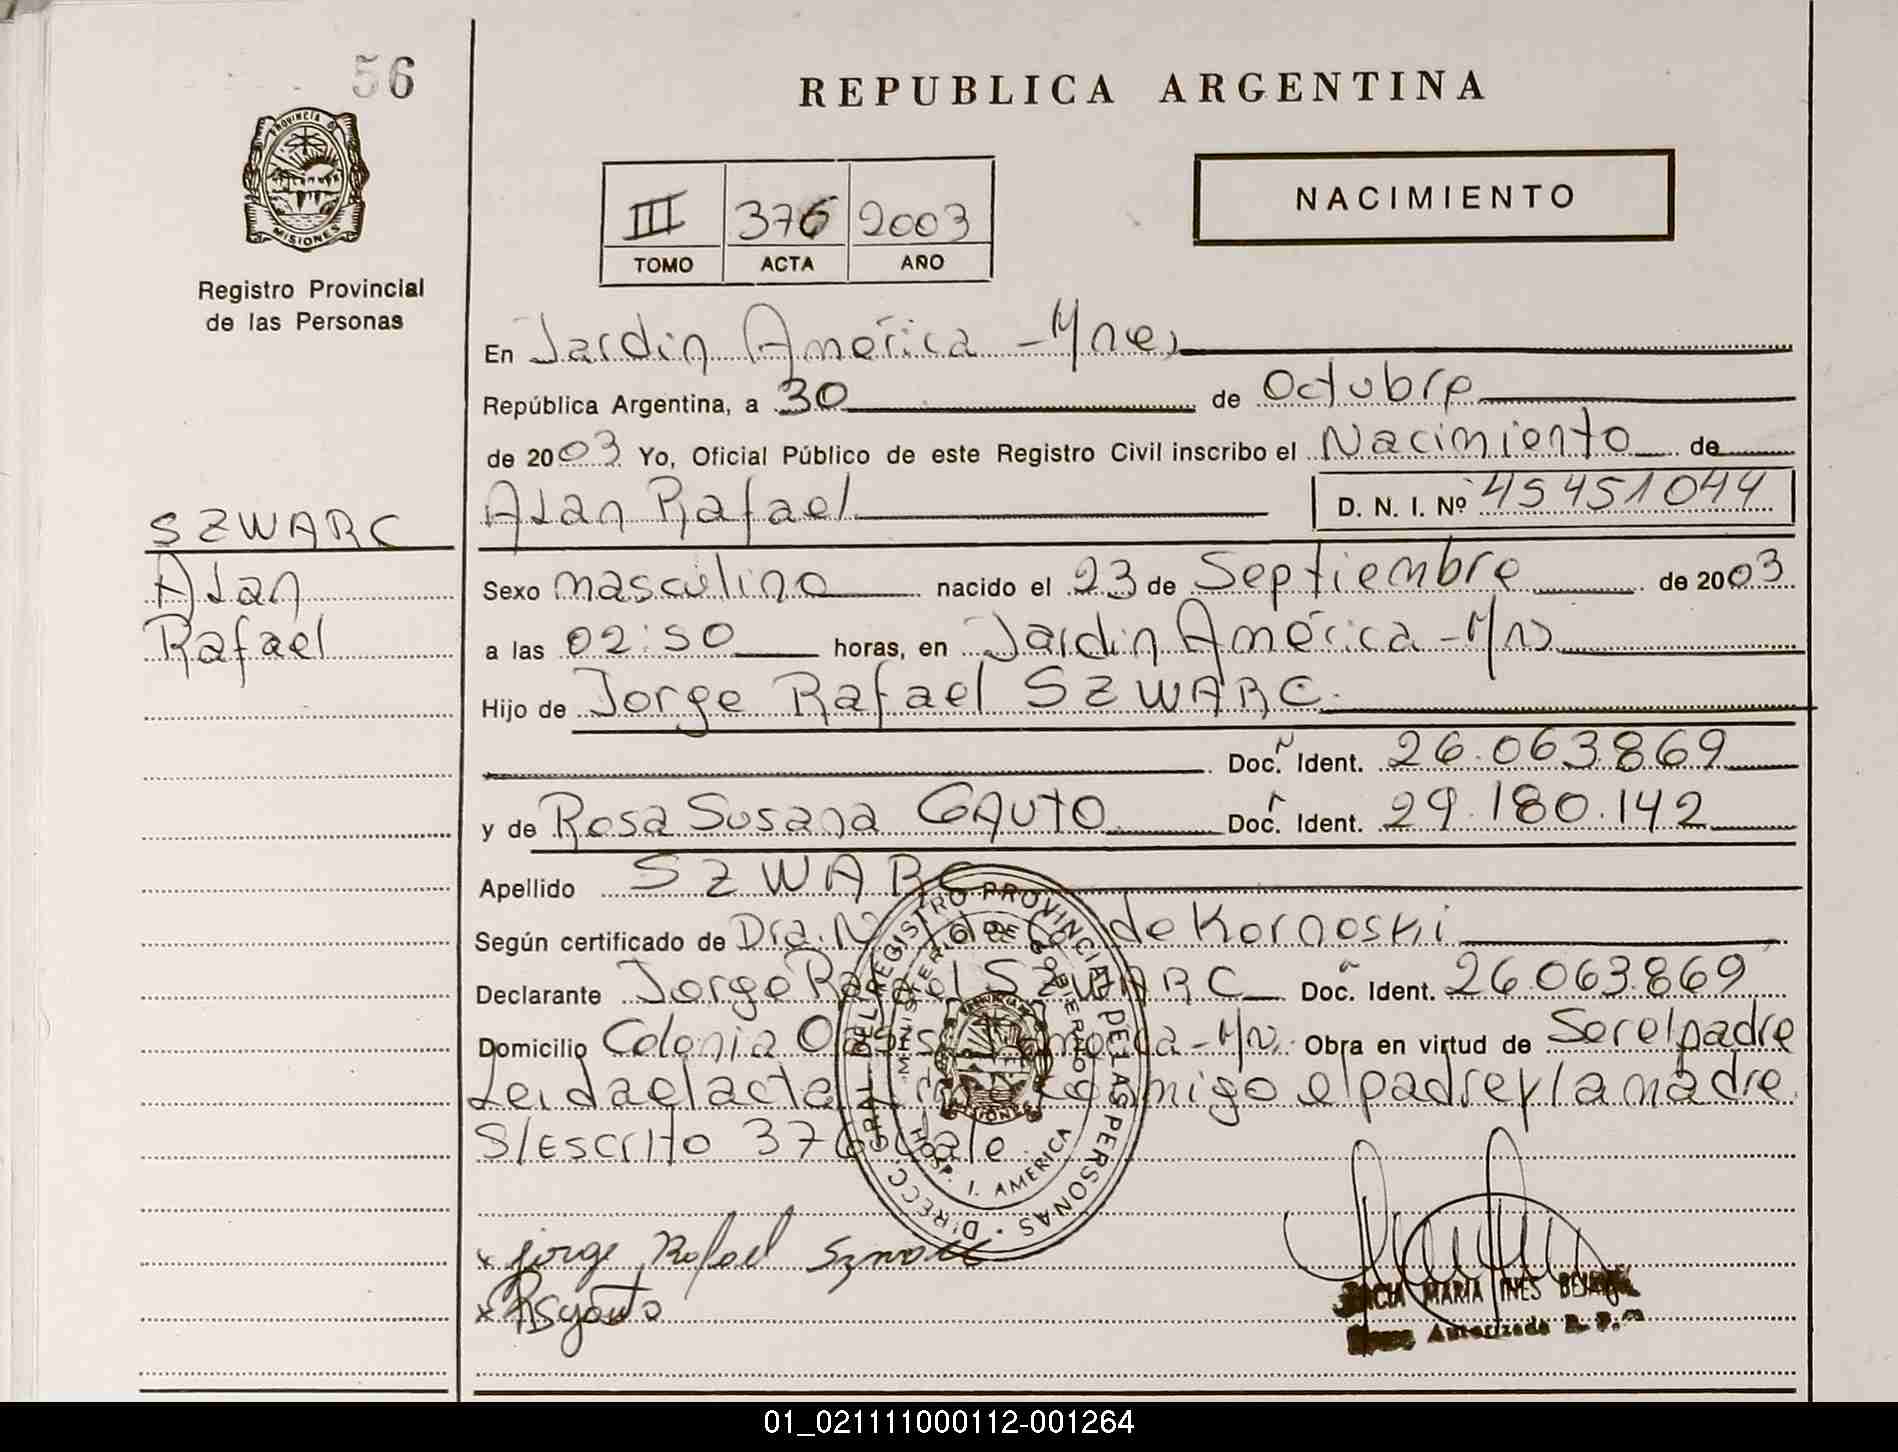 56
REPUBLICA ARGENTINA
PROVINCIA DE
MISIONES
NACIMIENTO
III 376 2003
TOMO ACTA AÑO
Registro Provincial
de las Personas
En Jardin América - Mnes
República Argentina, a 30 de Octubre
de 2003 Yo, Oficial Público de este Registro Civil inscribo el Nacimiento de
Alan Rafael D. N. I. Nº 45451044
SZWARC
Alan
Rafael
Sexo masculino nacido el 23 de Septiembre de 2003
a las 02:50 horas, en Jardin América - Mns
Hijo de Jorge Rafael SZWARC
Doc. Ident. 26.063.869
y de Rosa Susana GAUTO Doc. Ident. 29.180.142
Apellido SZWARC
Según certificado de Dra. de Kornoski
Declarante Jorge Rafael SZWARC Doc. Ident. 26.063.869
Domicilio Colonia - Mns. Obra en virtud de Ser el padre
Leida el acta conmigo el padre y la madre.
S/Escrito 376 vale.
DIRECC. GRAL. DEL REGISTRO PROVINCIAL DE LAS PERSONAS
MINISTERIO DE GOBIERNO
MISIONES
HOSP. J. AMERICA
x Jorge Rafael Szwarc
x RSgauto
MARIA INES
Autorizada R. P.
01_021111000112-001264